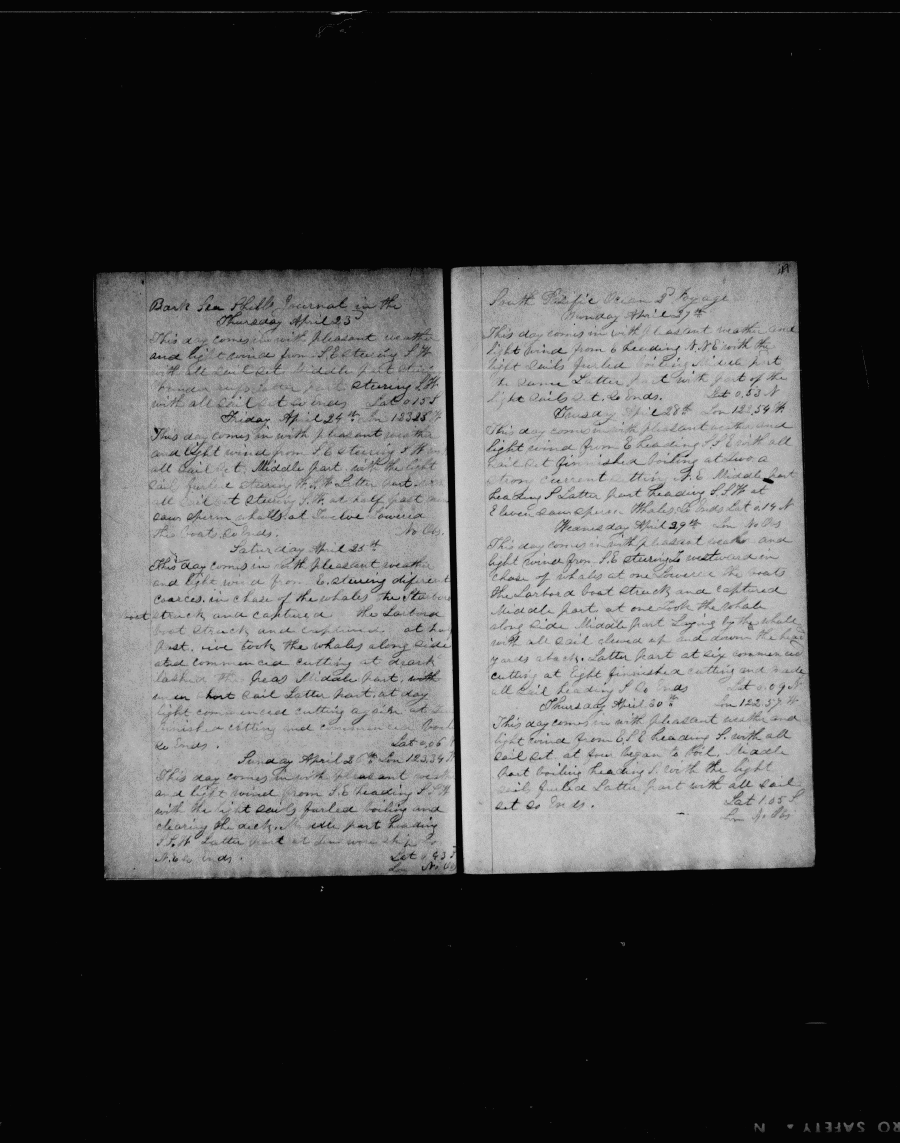 Bark Sea Shell Journal in the
Thursday April 23d
This day comes in with pleasant weather
and light wind from S.E steering S.W
with all sail set Middle part
latter part steering S.W.
with all sail set so ends Lat 0.15 S
Friday April 24th Lon 123.28 W
This day comes in with pleasant weather
and light wind from S.E steering S.W
all sail set, Middle part with the light
sail furled steering W.S.W Latter part
all sail set steering S.W. at half past
saw sperm whales at Twelve Lowered
the boats So Ends. No Obs.
Saturday April 25th
This day comes in with pleasant weather
and light wind from E. steering diferent
coarces. in chase of the whales the Starbord
boat struck and captured the Larbord
boat struck and captured at half
past five took the whales along side
and commenced cutting at dark
lashed the Middle part, with
short sail Latter part, at day
light commenced cutting again at
finished cutting and commenced
So Ends. Lat 0.06
Sunday April 26th Lon 123.34 W
This day comes in with pleasant weather
and light wind from S.E heading S.S.W
with the light sails furled boiling and
clearing the deck. Middle part heading
S.S.W Latter part at ship
N.E so ends. Lat 0.03
Lon No Obs
South Pacific Ocean 2d Voyage
Monday April 27th
This day comes in with pleasant weather and
light wind from E heading N.N.E with the
light sails furled boiling Middle part
the same Latter part with part of the
light sails set, so ends. Lat 0.53 N
Thursday April 28th Lon 122.54 W
This day comes in with pleasant weather and
light wind from E heading S.S.E with all
sail set finnished boiling at two a
strong current setting N.E Middle part
heading S Latter part heading S.S.W at
Eleven saw sperm Whales So Ends Lat 0.14 N
Wednesday April 29th Lon No Obs
This day comes in with pleasant weather and
light wind from S.E steering to westward in
chase of whales at one Lowered the boats
the Larbord boat struck and captured
Middle part at one took the whale
along side Middle part Laying by the whale
with all sail clewed up and down the head
yards aback. Latter part at six commenced
cutting at Eight finnished cutting and made
all sail heading S So Ends Lat 0.09 N
Thursday April 30th Lon 122.57 W
This day comes in with pleasant weather and
light wind from E.S.E heading S. with all
sail set at four began to boil. Middle
part boiling heading S. with the light
sails furled Latter part with all sail
set so Ends. Lat 1.05 S
Lon No Obs